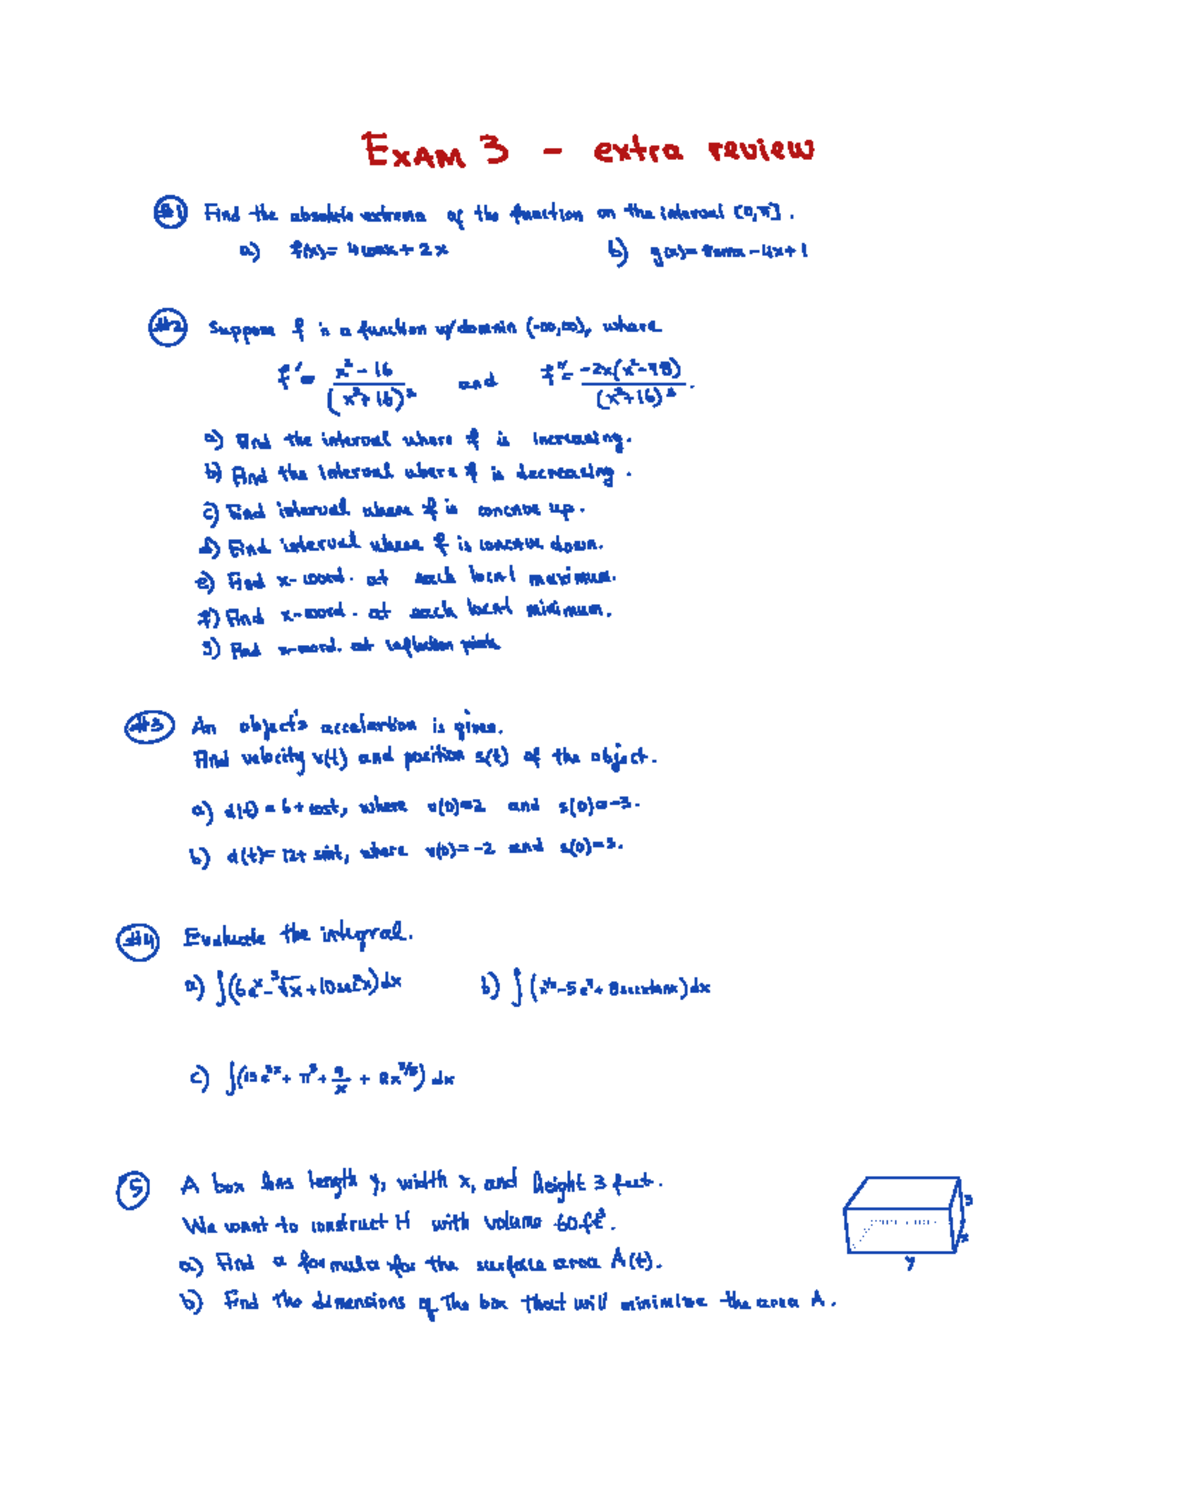 EXAM 3 - extra review
#1 Find the absolute extrema of the function on the interval [0,π].
a) f(x)= 4cosx + 2x b) g(x)= -4x+1
#2 Suppose f is a function w/domain (-∞,∞), where
f' = x²-16 / (x²+16)² and f'' = -2x(x²-48) / (x²+16)³.
a) Find the interval where f is increasing.
b) Find the interval where f is decreasing.
c) Find interval where f is concave up.
d) Find interval where f is concave down.
e) Find x-coord. at each local maximum.
f) Find x-coord. at each local minimum.
g) Find x-coord. at inflection point
#3 An object's accelartion is given.
Find velocity v(t) and position s(t) of the object.
a) a(t) = 6 + cost, where v(0)=2 and s(0)=-3.
b) a(t)= 12+ sint, where v(0)= -2 and s(0)=3.
#4 Evaluate the integral.
a) ∫(6e^x - ³√x + 10sec²x)dx b) ∫( -5e^x + 8secxtanx)dx
c) ∫( + π³ + 9/x + ) dx
5 A box has length y, width x, and height 3 feet.
We want to construct it with volume 60ft³.
a) Find a formula for the surface area A(t).
b) Find the dimensions of the box that will minimize the area A.
3
x
y